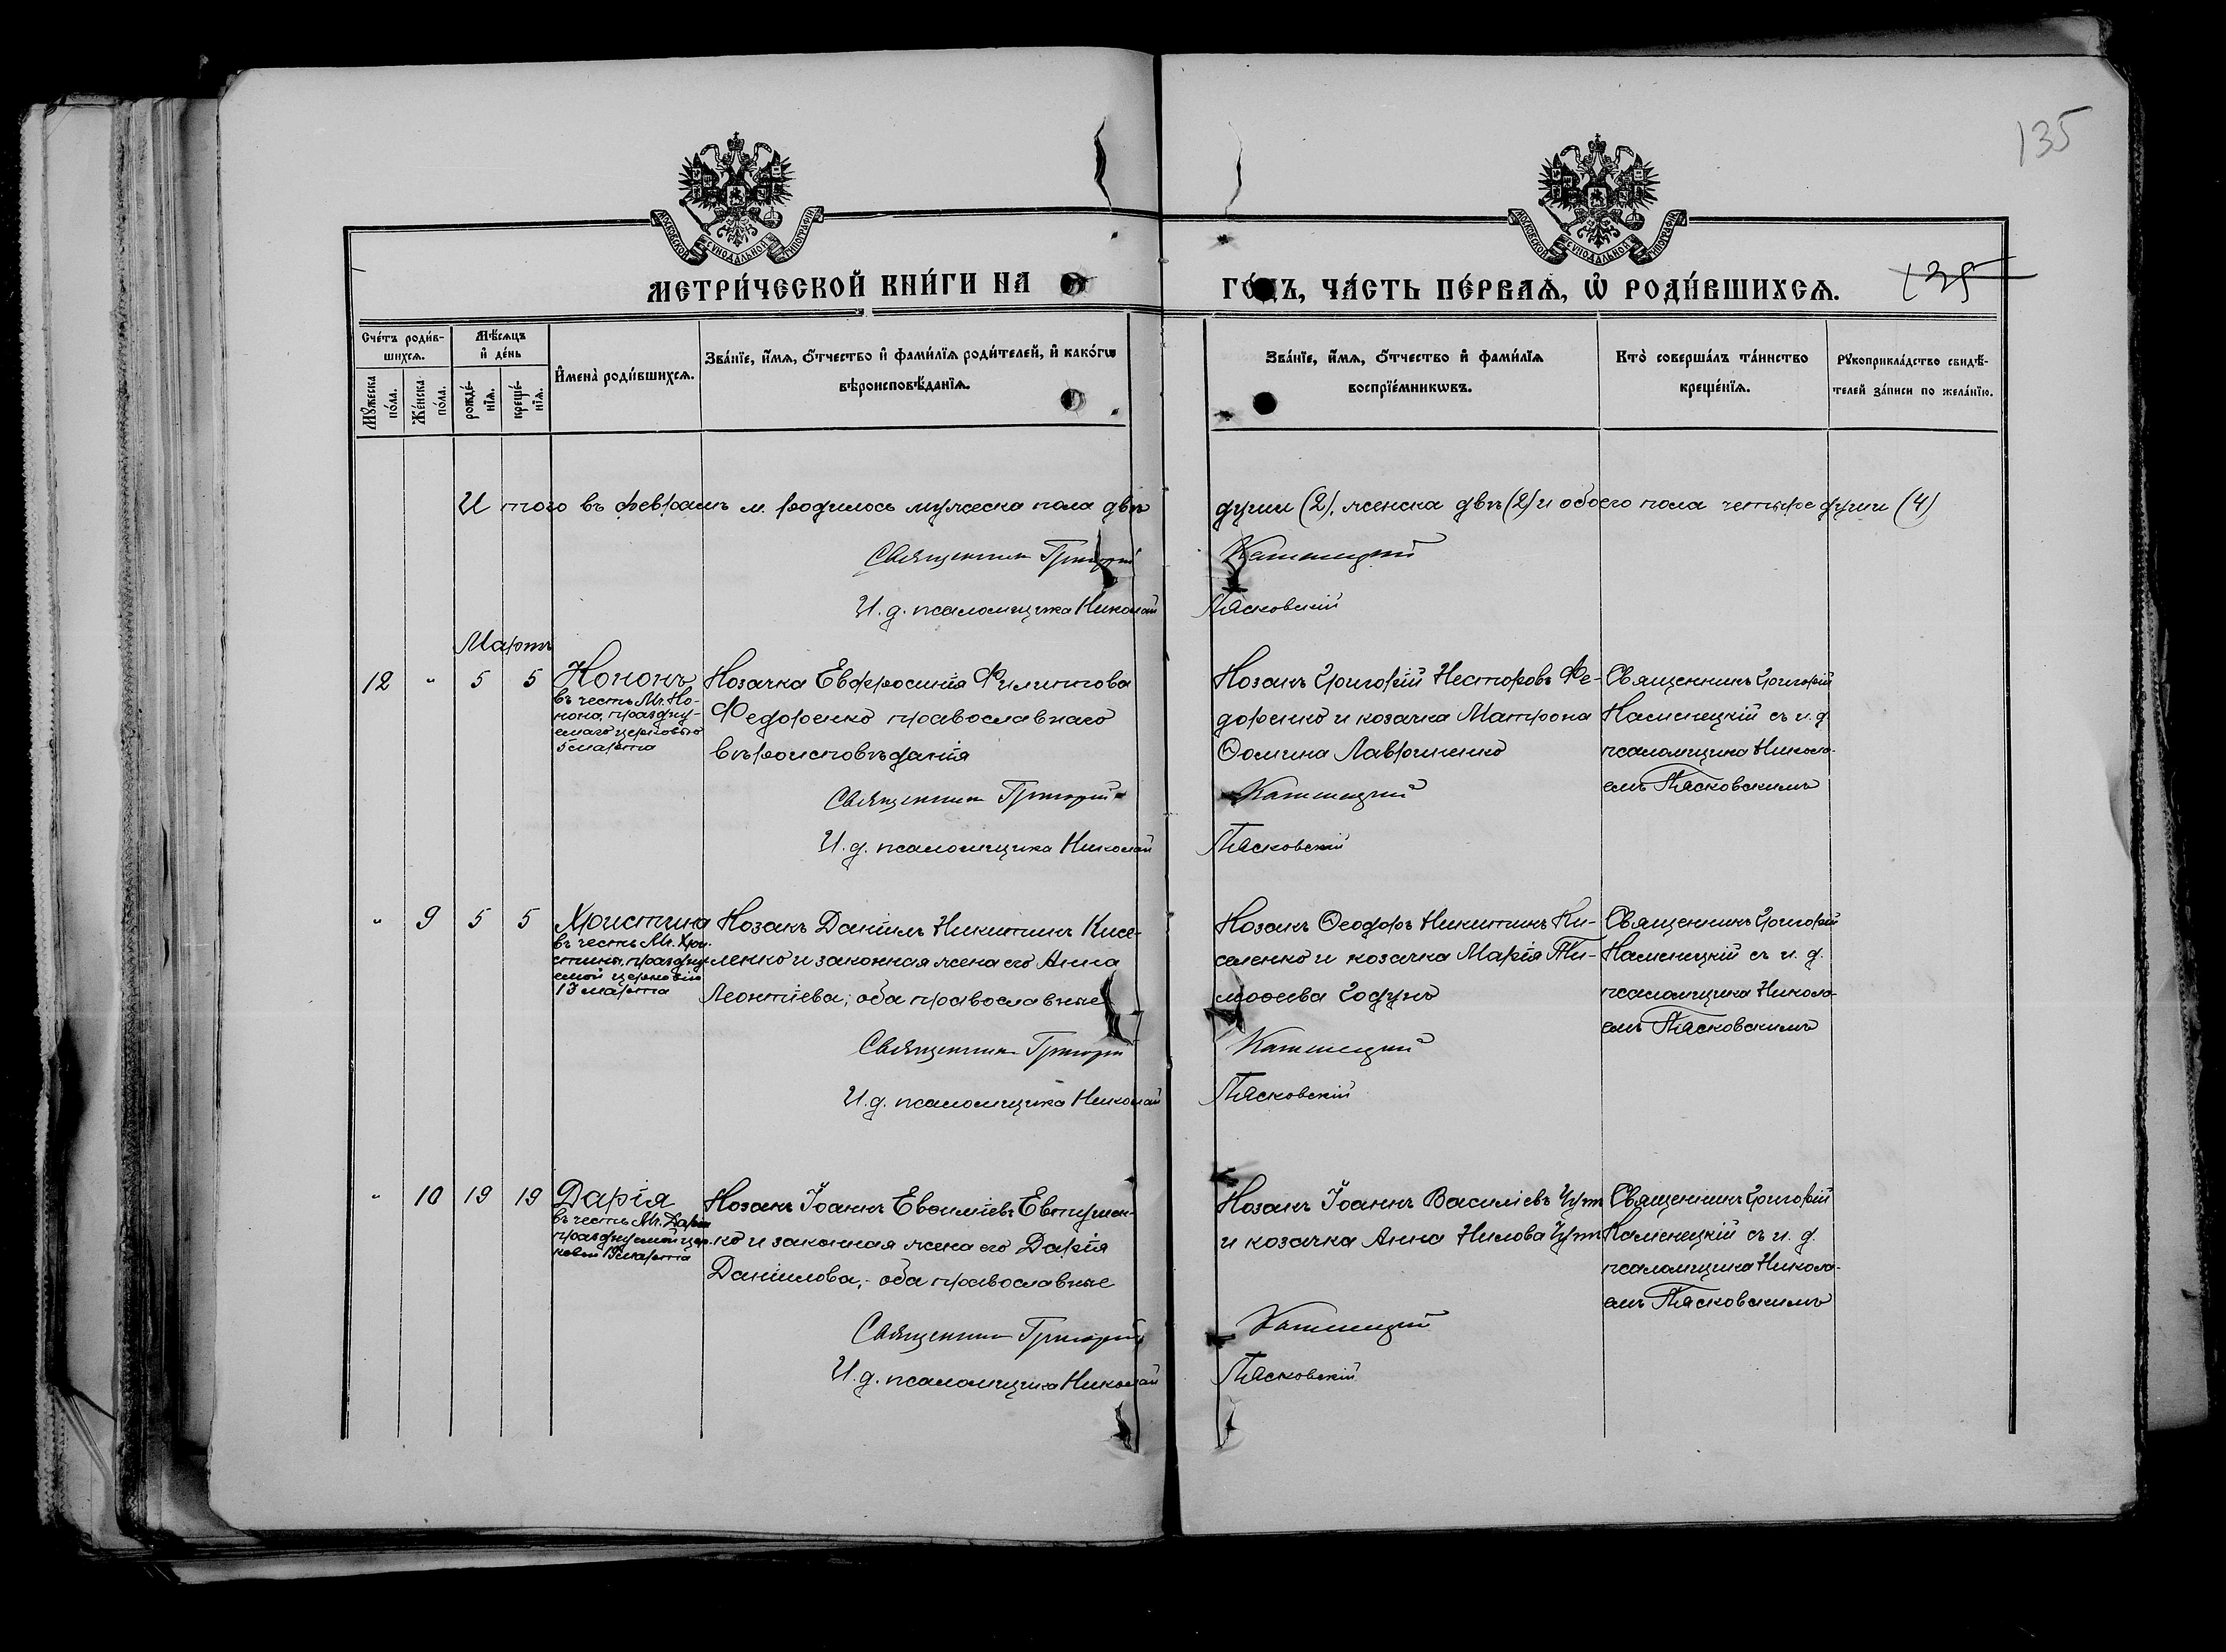 135
МОСКОВСКОЙ СѴНОДАЛЬНОЙ ТИПОГРАФІИ
МОСКОВСКОЙ СѴНОДАЛЬНОЙ ТИПОГРАФІИ
МЕТРИ́ЧЕСКОЙ КНИ́ГИ НА ГО́ДЪ, ЧА́СТЬ ПЕ́РВАѦ, Ѡ҆ РОДИ́ВШИХСѦ.
135
Сче́тъ роди́в-
шихсѧ.
Мꙋ́жеска по́ла.
Же́нска по́ла.
Мѣ́сѧцъ
и҆ де́нь
рожде́-
нїѧ.
креще́-
нїѧ.
И҆мена̀ роди́вшихсѧ.
Зва́нїе, и҆́мѧ, ѻ҆́тчество и҆ фами́лїѧ роди́телей, и҆ како́гѡ
вѣроисповѣ́данїѧ.
Зва́нїе, и҆́мѧ, ѻ҆́тчество и҆ фами́лїѧ
воспрїе́мникѡвъ.
Кто̀ соверша́лъ та́инство
креще́нїѧ.
Рꙋкоприкла́дство свидѣ́-
телей за́писи по жела́нїю.
И того въ февралѣ м. родилось мужеска пола двѣ души (2), женска двѣ (2) и обоего пола четыре души (4)
Священник Григорий Каменецкий
И. д. псаломщика Николай Пясковскій
Мартъ
12 " 5 5
Кононъ
въ честь Мч. Ко-
нона, праздну-
емаго церковью
5 марта
Козачка Евфросинія Филиппова
Федоренко православнаго
вѣроисповѣданія
Козакъ Григорій Несторовъ Фе-
доренко и козачка Матрона
Ѳомина Лавриненко
Священникъ Григорій
Каменецкій съ и. д.
псаломщика Никола-
емъ Пясковскимъ
Священник Григорий Каменецкий
И. д. псаломщика Николай Пясковскій
" 9 5 5
Христина
въ честь Мч. Хри-
стины, праздну-
емой церковію
13 марта
Козакъ Даніилъ Никитинъ Кисе-
ленко и законная жена его Анна
Леонтіева; оба православные
Козакъ Ѳеодоръ Никитинъ Ки-
селенко и козачка Марія Ти-
моѳеева Годунъ
Священникъ Григорій
Каменецкій съ и. д.
псаломщика Никола-
емъ Пясковскимъ
Священник Григорий Каменецкий
И. д. псаломщика Николай Пясковскій
" 10 19 19
Дарія
въ честь Мч. Даріи
празднуемой цер-
ковью 19 марта
Козакъ Іоаннъ Евѳиміевъ Евтушен-
ко и законная жена его Дарія
Даніилова; оба православные
Козакъ Іоаннъ Василіевъ
и козачка Анна Нилова
Священникъ Григорій
Каменецкій съ и. д.
псаломщика Никола-
емъ Пясковскимъ
Священник Григорий Каменецкий
И. д. псаломщика Николай Пясковскій